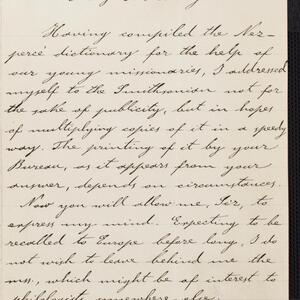 Having compiled the Nez-
percé dictionary for the help of
our young missionaries, I addressed
myself to the Smithsonian not for
the sake of publicity, but in hopes
of multiplying copies of it in a speedy
way. The printing of it by your
Bureau, as it appears from your
answer, depends on circumstances.
Now you will allow me, Sir, to
express my mind. Expecting to be
recalled to Europe before long, I do
not wish to leave behind me the
mss., which might be of interest to
philologists somewhere else.